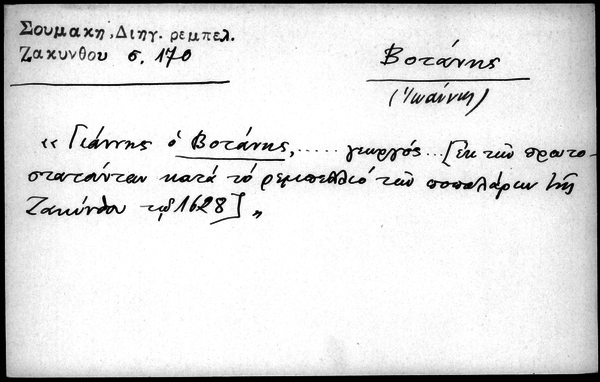 Σουμακη, Διηγ. ρεμπελ.
Ζακυνθου σ. 170
Βοτάνης
(Ἰωάννης)
« Γιάννης ὁ Βοτάνης, ..... γεωργός... [ἐκ τῶν πρωτο-
στατούντων κατὰ τὸ ρεμπελλιό τῶν ποπολάρων τῆς
Ζακύνθου τῷ 1628] »